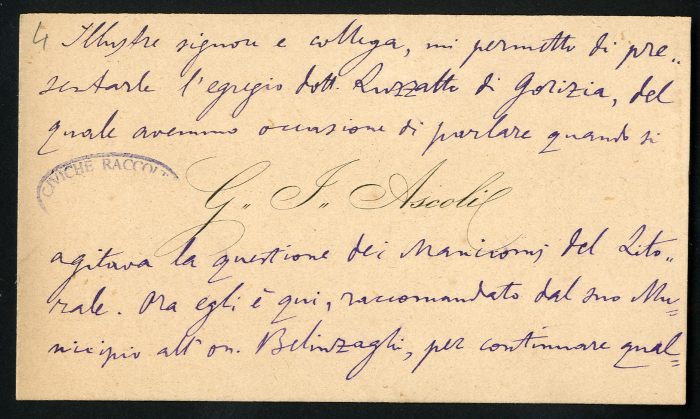 4 Illustre signore e collega, mi permetto di pre„
sentarle l'egregio dott. Luzzatto di Gorizia, del
quale avemmo occasione di parlare quando si
CIVICHE RACCOLT
G„ I„ Ascoli
agitava la questione dei Manicomj del Lito„
rale. Ora egli è qui, raccomandato dal suo Mu„
nicipio all'on. Belinzaghi, per continuare qual=